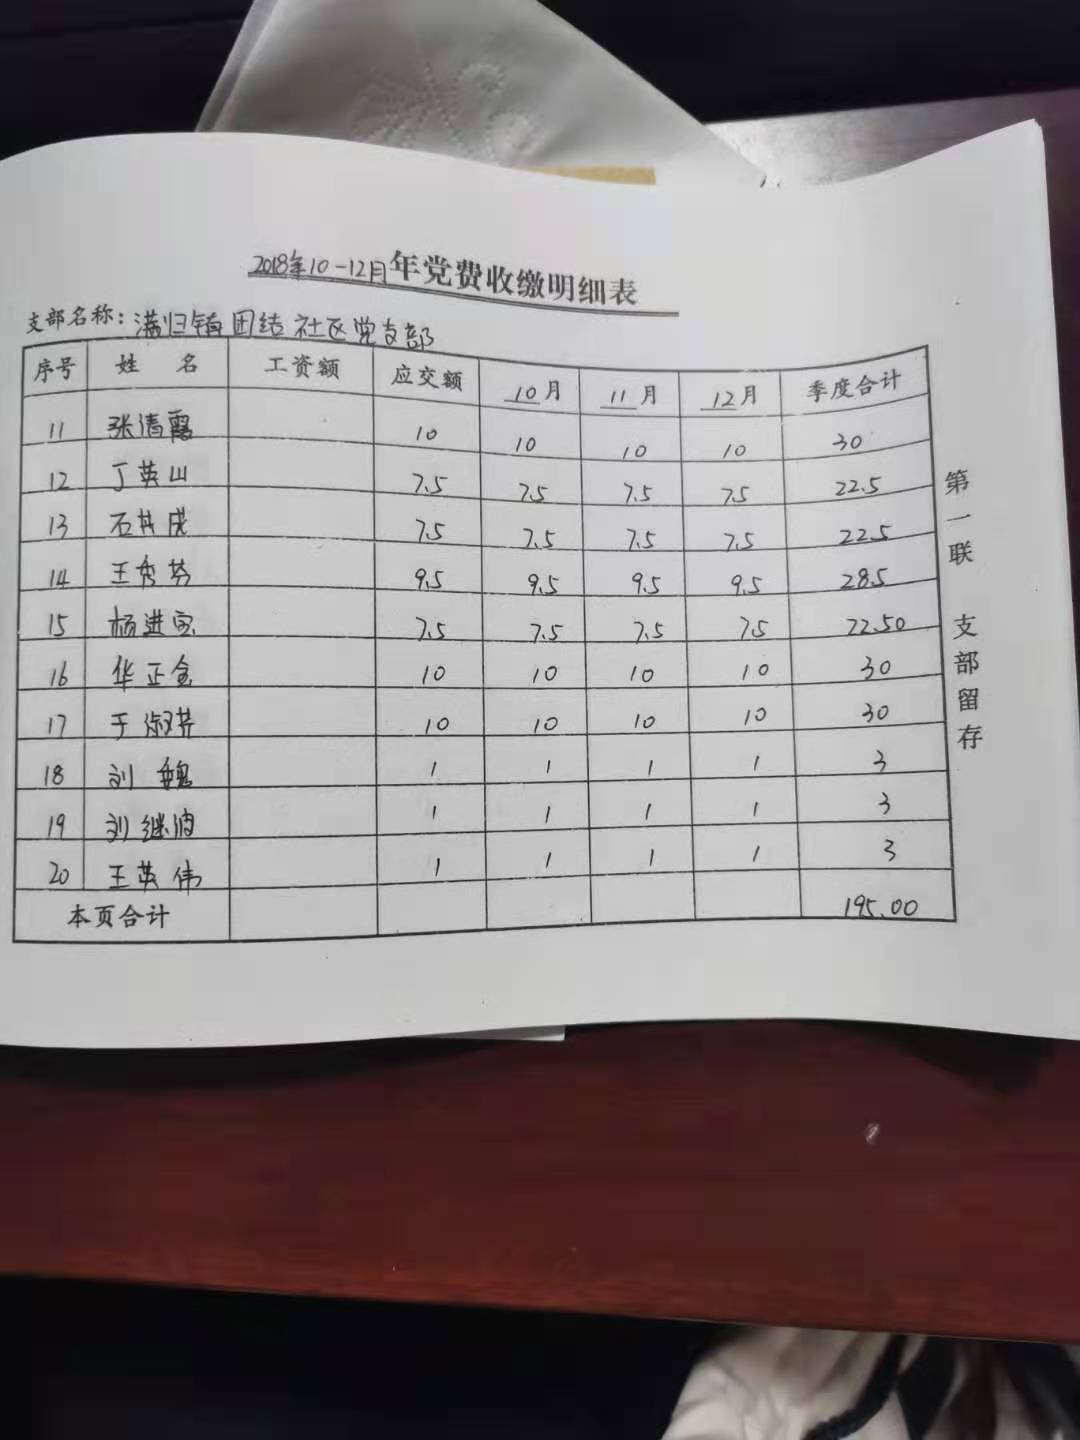 2018年10-12月年党费收缴明细表
支部名称：满归镇团结社区党支部
序号 姓名 工资额 应交额 10月 11月 12月 季度合计
11 张清霞 10 10 10 10 30
12 丁英山 7.5 7.5 7.5 7.5 22.5
13 石其成 7.5 7.5 7.5 7.5 22.5
14 王秀芬 9.5 9.5 9.5 9.5 28.5
15 杨进宝 7.5 7.5 7.5 7.5 22.50
16 华正金 10 10 10 10 30
17 于淑芹 10 10 10 10 30
18 刘魏 1 1 1 1 3
19 刘继波 1 1 1 1 3
20 王英伟 1 1 1 1 3
本页合计 195.00
第一联 支部留存